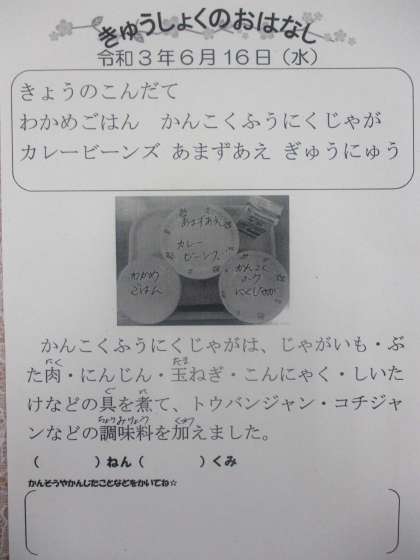 きゅうしょくのおはなし
令和3年6月16日(水)
きょうのこんだて
わかめごはん　かんこくふうにくじゃが
カレービーンズ　あまずあえ　ぎゅうにゅう
あまずあえ
カレー
ビーンズ
わかめ
ごはん
かんこく
フーフ
にくじゃが
かんこくふうにくじゃがは、じゃがいも・ぶ
にく　たま
た肉・にんじん・玉ねぎ・こんにゃく・しいた
ぐ　に
けなどの具を煮て、トウバンジャン・コチジャ
ちょうみりょう　くわ
ンなどの調味料を加えました。
(　　　)ねん(　　　)くみ
かんそうやかんじたことなどをかいてね☆